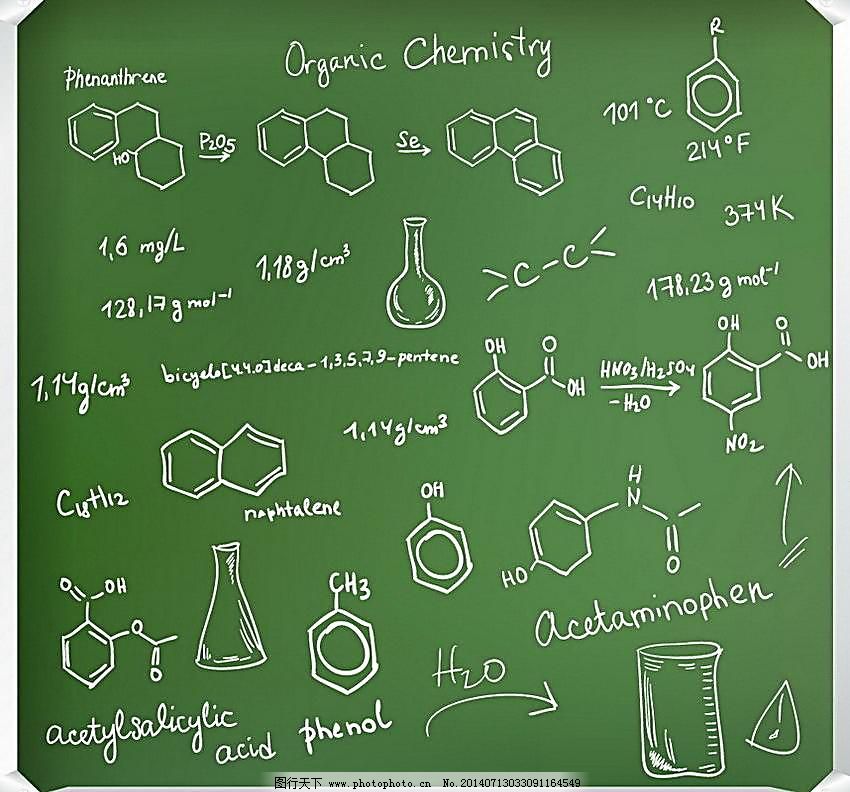 Organic Chemistry
Phenanthrene
R
101 °C
214°F
HO
P2O5
Se
C14H10
374K
1,6 mg/L
1,18g/cm³
C-C
128,17g mol⁻¹
178,23 g mol⁻¹
1,14g/cm³
bicyclo[4.4.0]deca-1,3,5,7,9-pentene
OH
O
OH
HNO3/H2SO4
-H2O
OH
O
OH
NO2
1,14g/cm³
C18H12
naphtalene
OH
H
N
O
HO
Acetaminophen
O
OH
O
O
CH3
H2O
acetylsalicylic
acid
phenol
图行天下 www.photophoto.cn No.20140713033091164549